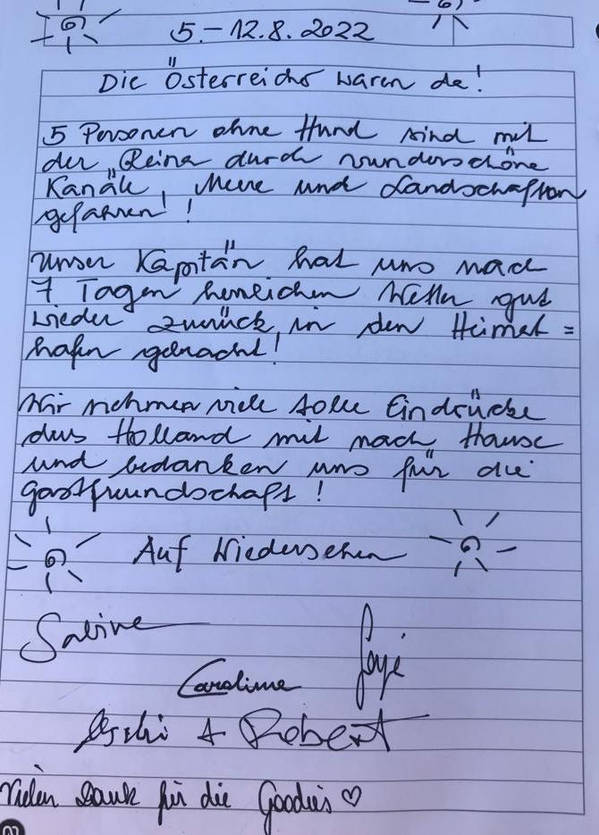 5.-12.8.2022
Die Österreicher waren da!
5 Personen ohne Hund sind mit
der "Reina" durch wunderschöne
Kanäle, Meere und Landschaften
gefahren!!
Unser Kapitän hat uns nach
7 Tagen herrlichen Wetter gut
wieder zurück in den Heimat=
hafen gebracht!
Wir nehmen viele tolle Eindrücke
aus Holland mit nach Hause
und bedanken uns für die
Gastfreundschaft!
Auf Wiedersehen
Sabine
Caroline
+ Robert
Vielen Dank für die Goodies ♡